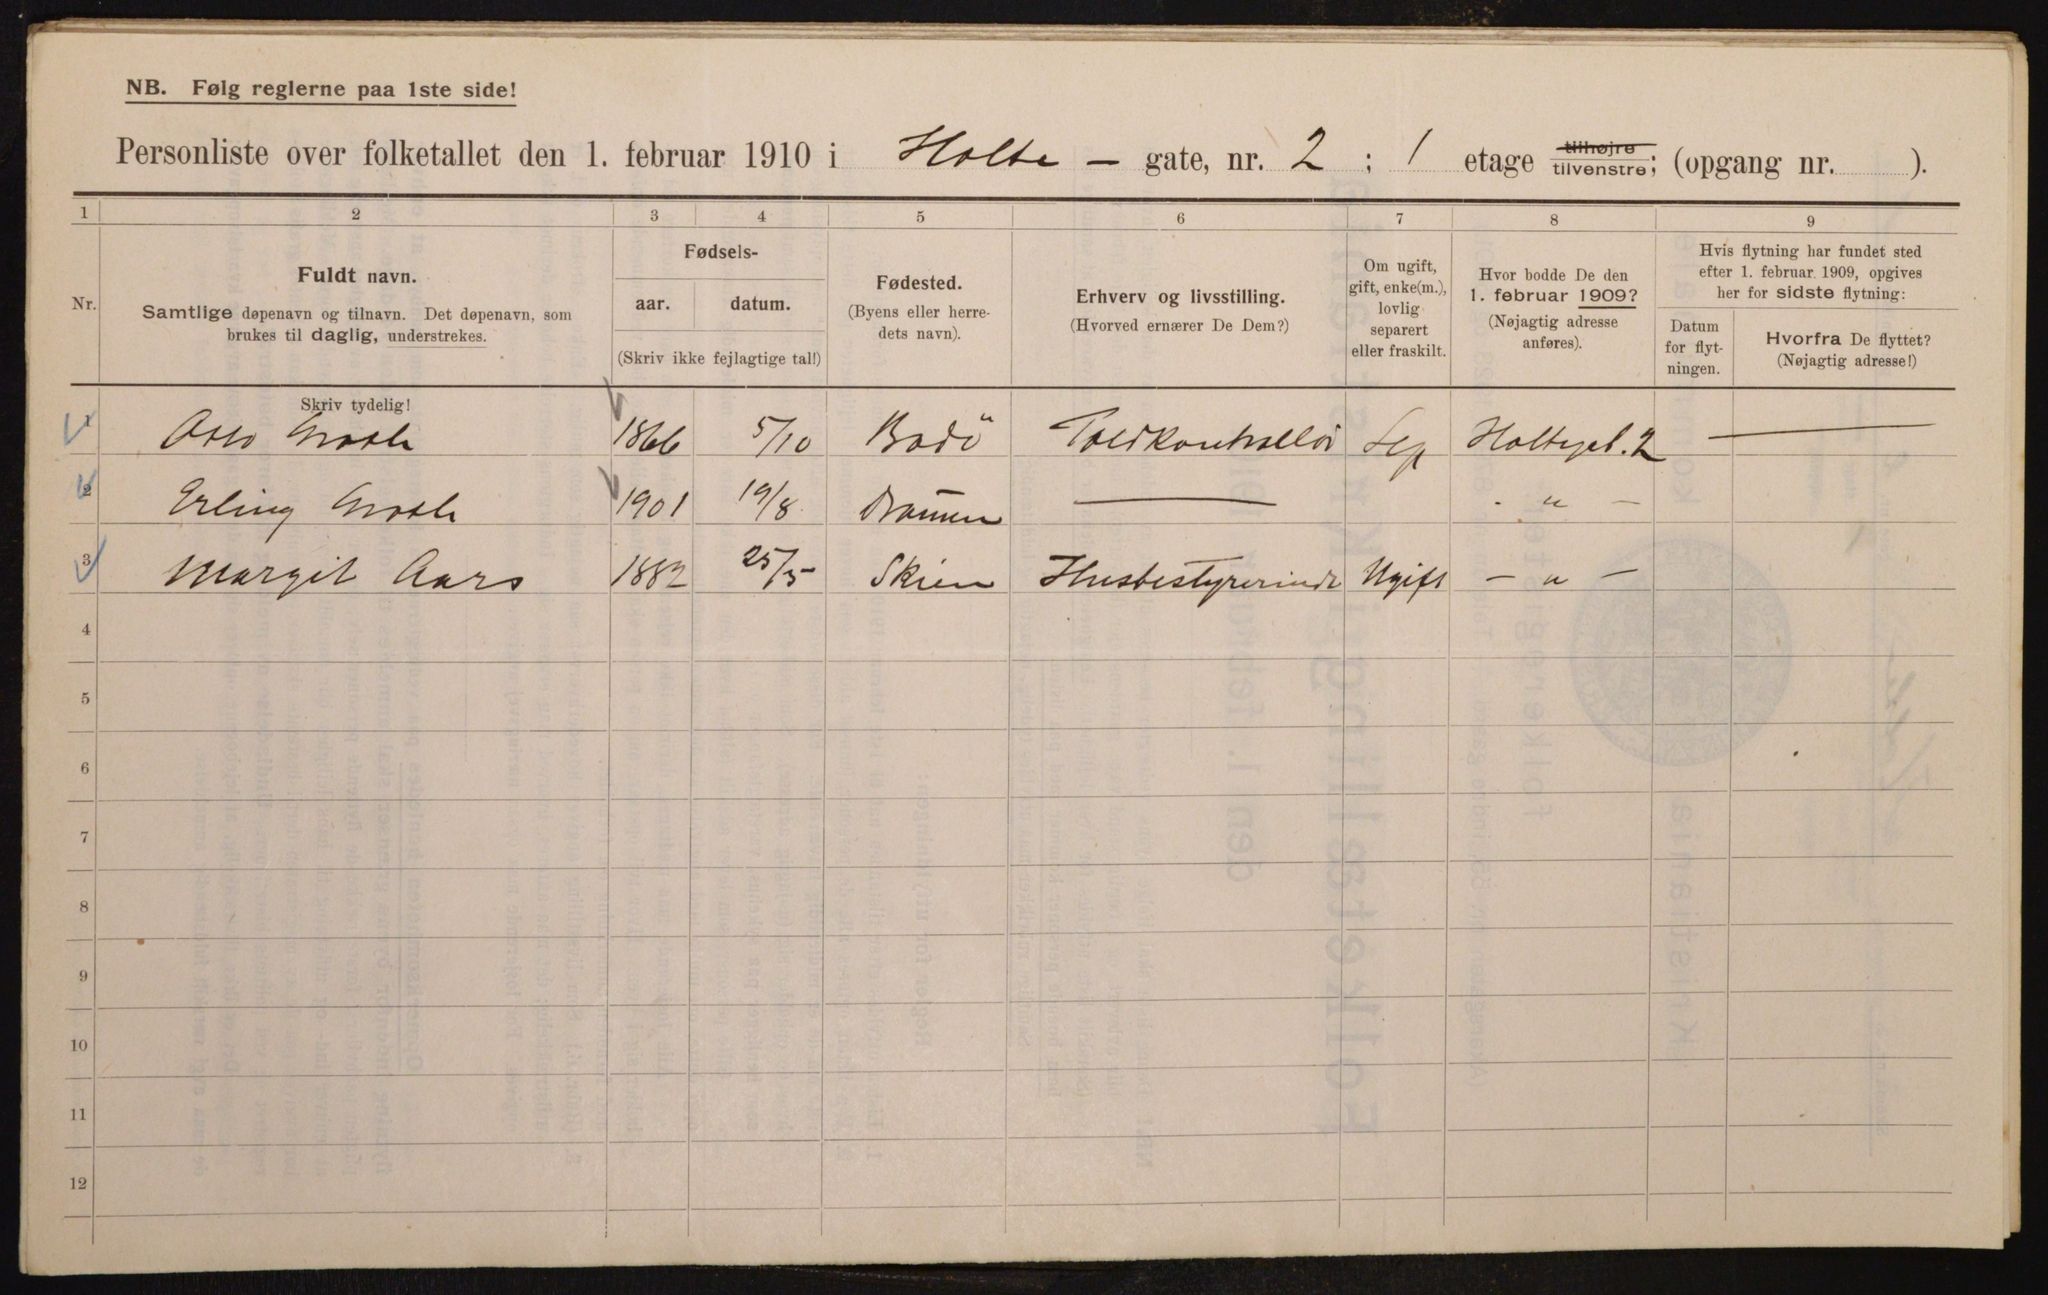 NB. Følg reglerne paa 1ste side!
Personliste over folketallet den 1. februar 1910 i Holte - gate, nr. 2 ; 1 etage tilhøjre tilvenstre; (opgang nr. ).
1 2 3 4 5 6 7 8 9
Nr.
Fuldt navn.
Samtlige døpenavn og tilnavn. Det døpenavn, som
brukes til daglig, understrekes.
Fødsels-
aar. datum.
(Skriv ikke fejlagtige tal!)
Fødested.
(Byens eller herre-
dets navn).
Erhverv og livsstilling.
(Hvorved ernærer De Dem?)
Om ugift,
gift, enke(m.),
lovlig
separert
eller fraskilt.
Hvor bodde De den
1. februar 1909?
(Nøjagtig adresse
anføres).
Hvis flytning har fundet sted
efter 1. februar 1909, opgives
her for sidste flytning:
Datum
for flyt-
ningen.
Hvorfra De flyttet?
(Nøjagtig adresse!)
Skriv tydelig!
1 Otto 1866 5/10 Bodö Toldkontrollör Sep Holtegt. 2 —
2 Erling 1901 19/8 Drammen — - " -
3 Margit Aars 1882 25/5 Skien Husbestyrerinde Ugift - " -
4
5
6
7
8
9
10
11
12